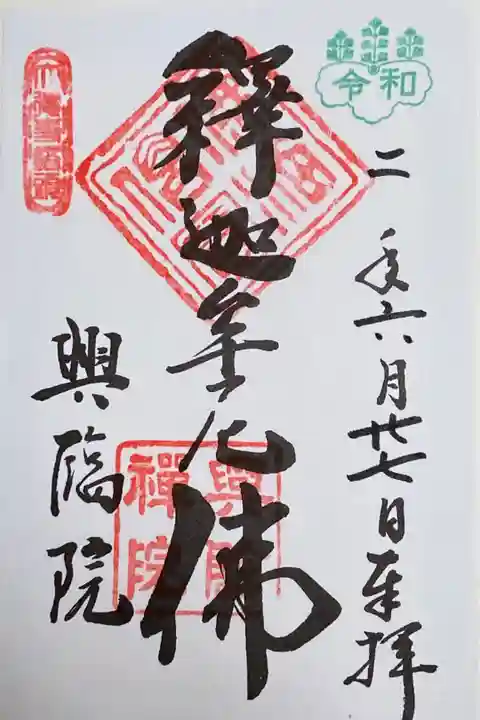 令和
二年六月廿七日奉拝
釋迦牟尼佛
興臨院
興臨禅院